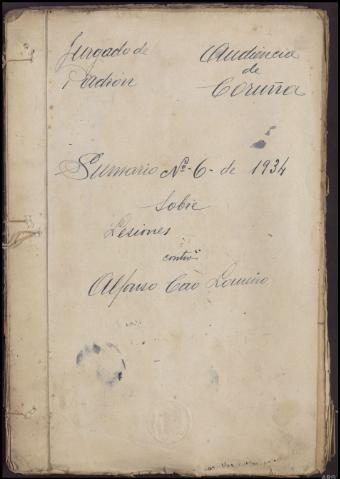 Juzgado de
Padrón
Audiencia
de
Coruña
Sumario Nº 6 - de 1934
Sobre
Lesiones
contra
Alfonso Cao Loureiro
ARG